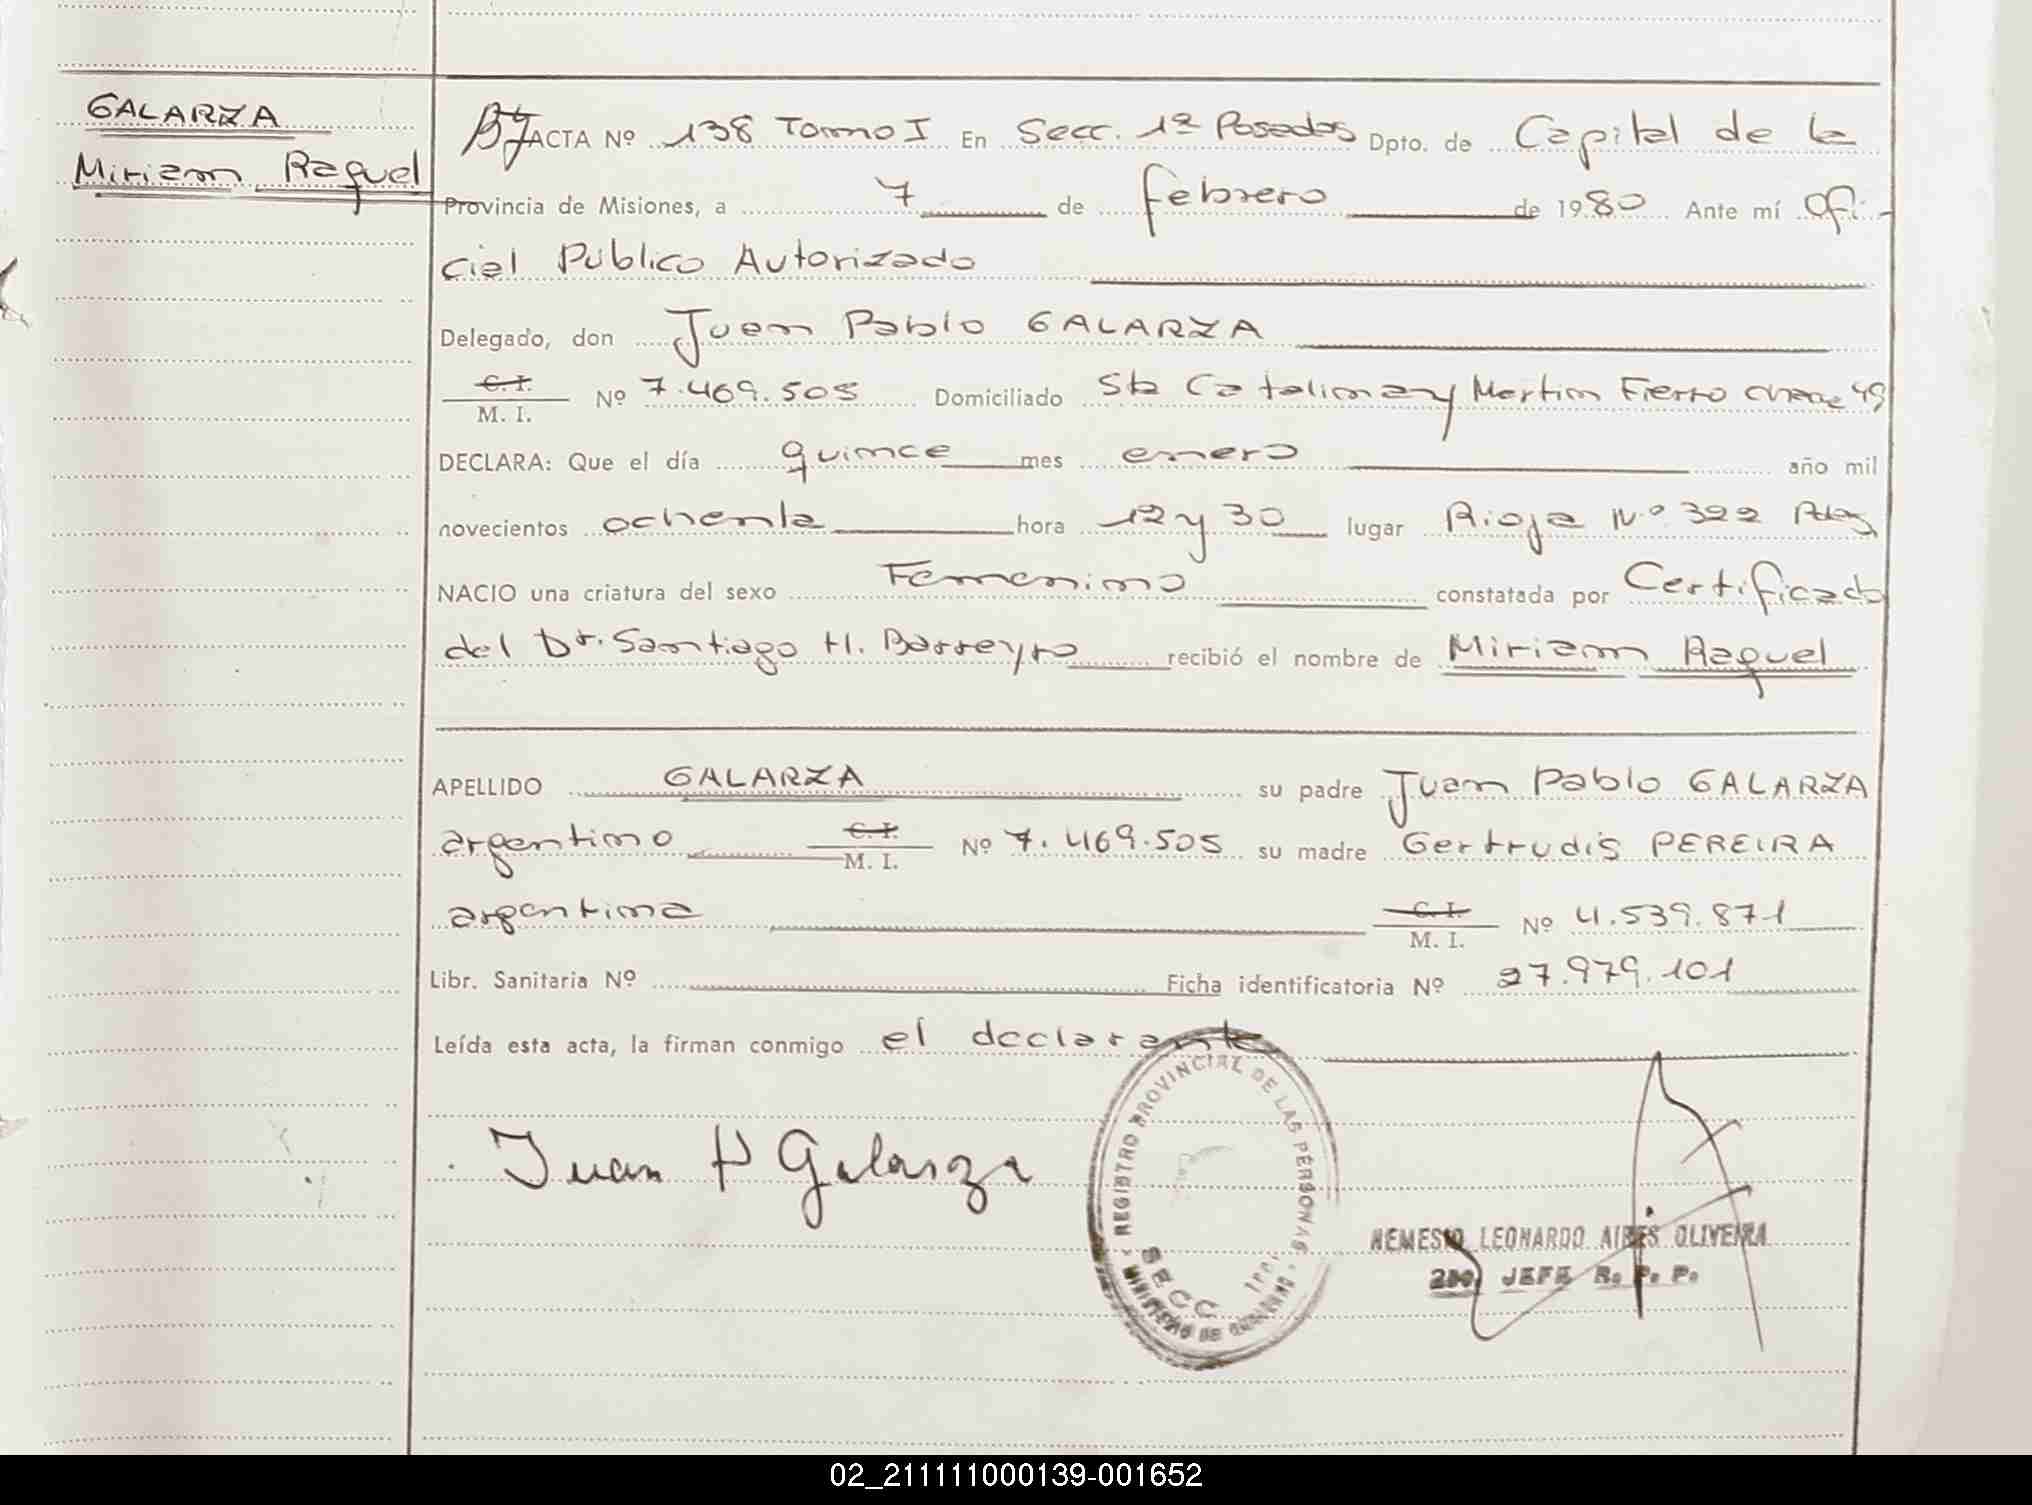 GALARZA
Miriam Raquel
ACTA Nº 138 Tomo I En Secc. 1ª Posadas Dpto. de Capital de la
Provincia de Misiones, a 7 de febrero de 1980 Ante mí Ofi-
cial Público Autorizado
Delegado, don Juan Pablo GALARZA
C.I. M. I. Nº 7.469.505 Domiciliado Sta Catalina y Martin Fierro
DECLARA: Que el día quince mes enero año mil
novecientos ochenta hora 12 y 30 lugar Rioja Nº 322 Pdas
NACIO una criatura del sexo Femenino constatada por Certificado
del Dr. Santiago H. Barreyro recibió el nombre de Miriam Raquel
APELLIDO GALARZA su padre Juan Pablo GALARZA
argentino C.I. M. I. Nº 7.469.505 su madre Gertrudis PEREIRA
argentina C.I. M. I. Nº 4.539.871
Libr. Sanitaria Nº Ficha identificatoria Nº 27.979.101
Leída esta acta, la firman conmigo el declarante
Juan P Galarza
REGISTRO PROVINCIAL DE LAS PERSONAS
SECC
MINISTERIO DE GOBIERNO
NEMESIO LEONARDO AIRES OLIVEIRA
2do. JEFE R. P. P.
02_211111000139-001652